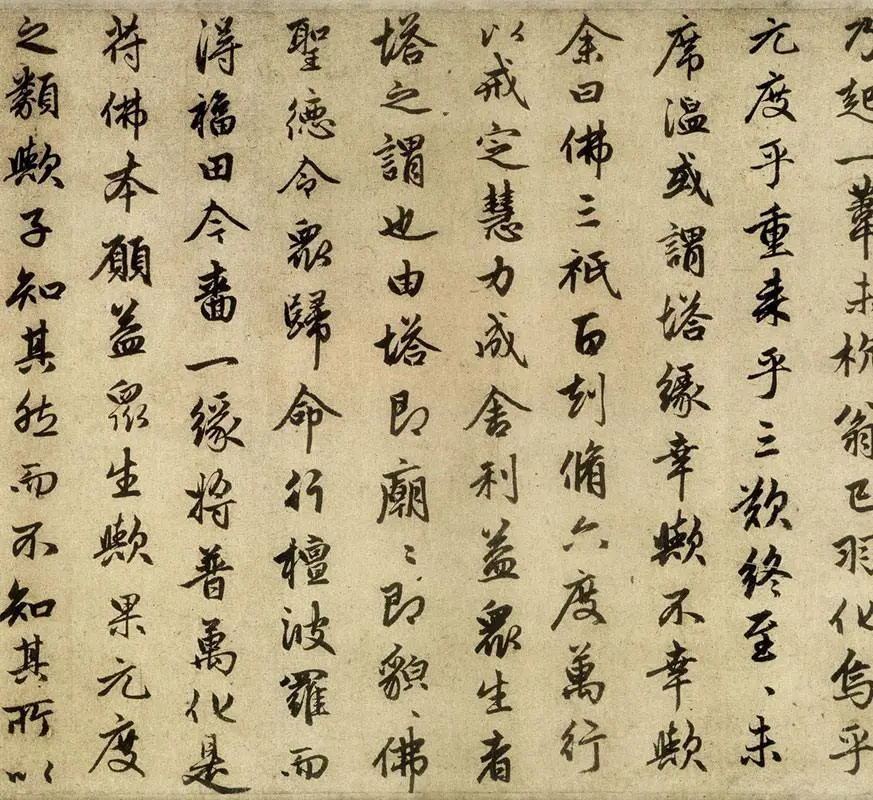 乃起一葦未杭翁已羽化烏乎
元度乎重来乎三歎終至〻未
席温或謂塔緣幸歟不幸歟
余曰佛三祇百刧脩六度萬行
以戒定慧力成舍利益眾生者
塔之謂也由塔即廟〻即貌〻佛
聖德令眾歸命行檀波羅而
得福田今嗇一緣將普萬化是
符佛本願益眾生歟果元度
之類歟子知其然而不知其所以